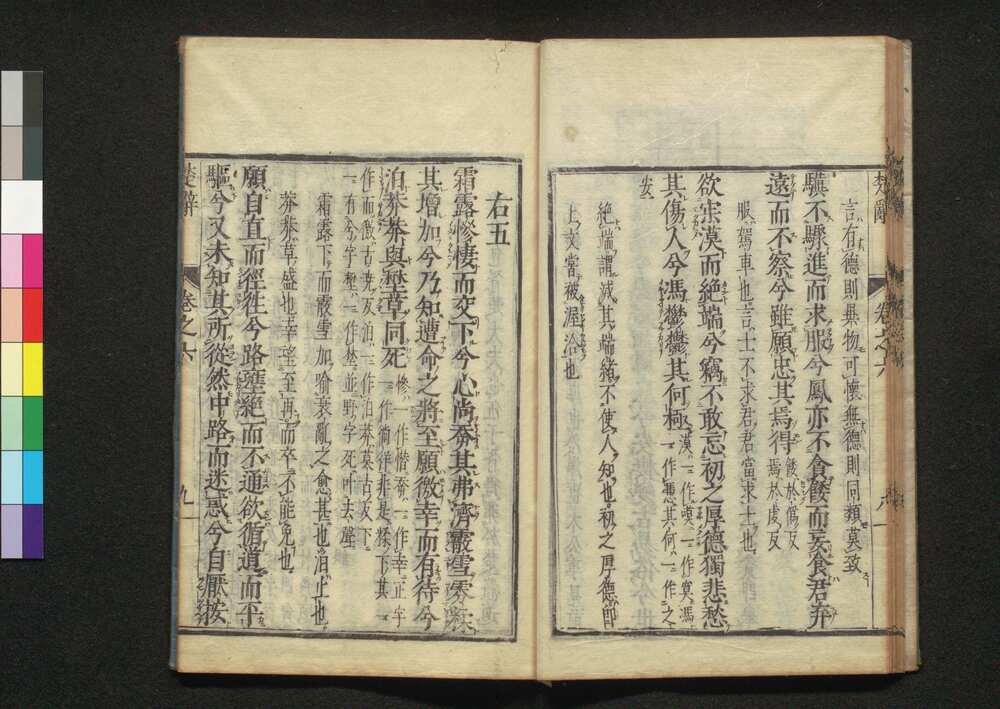 楚辭
卷之六
八
言有德則異物可懷無德則同類莫致
驥不驟進而求服兮鳳亦不貪餧而妄食君弃
遠而不察兮雖願忠其焉得餧於僞反焉於虔反
服駕車也言士不求君君當求士也
欲寂漠而絶端兮竊不敢忘初之厚德獨悲愁
其傷人兮馮鬱鬱其何極漠一作嘆一作寞馮一作憑其何一作之
安
絶端謂滅其端緒不使人知也初之厚德即
上文嘗被渥洽也
右五
霜露慘悽而交下兮心尚㐻其弗濟霰雪雰糅
其增加兮乃知遭命之將至願徼幸而有待兮
泊莽莽與壄草同死慘一作憯㐻一作幸正字一作徜徉非是糅下其一
作而徼古堯反泊一作洎莽莫古反下
一有兮字壄一作埜並野字死叶去聲
霜露下而霰雪加喻衰亂之愈甚也泊止也
莽莽草盛也幸望至再而卒不能免也
願自直而徑徃兮路壅絶而不通欲循道而平
驅兮又未知其所從然中路而迷惑兮自厭按
楚辭
卷之六
九